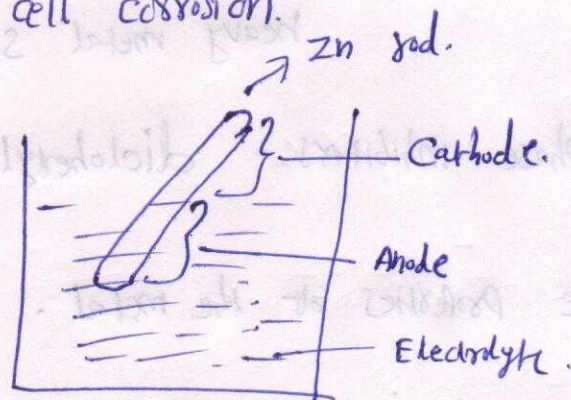 cell corrosion.
Zn rod.
Cathode.
Anode
Electrolyte.